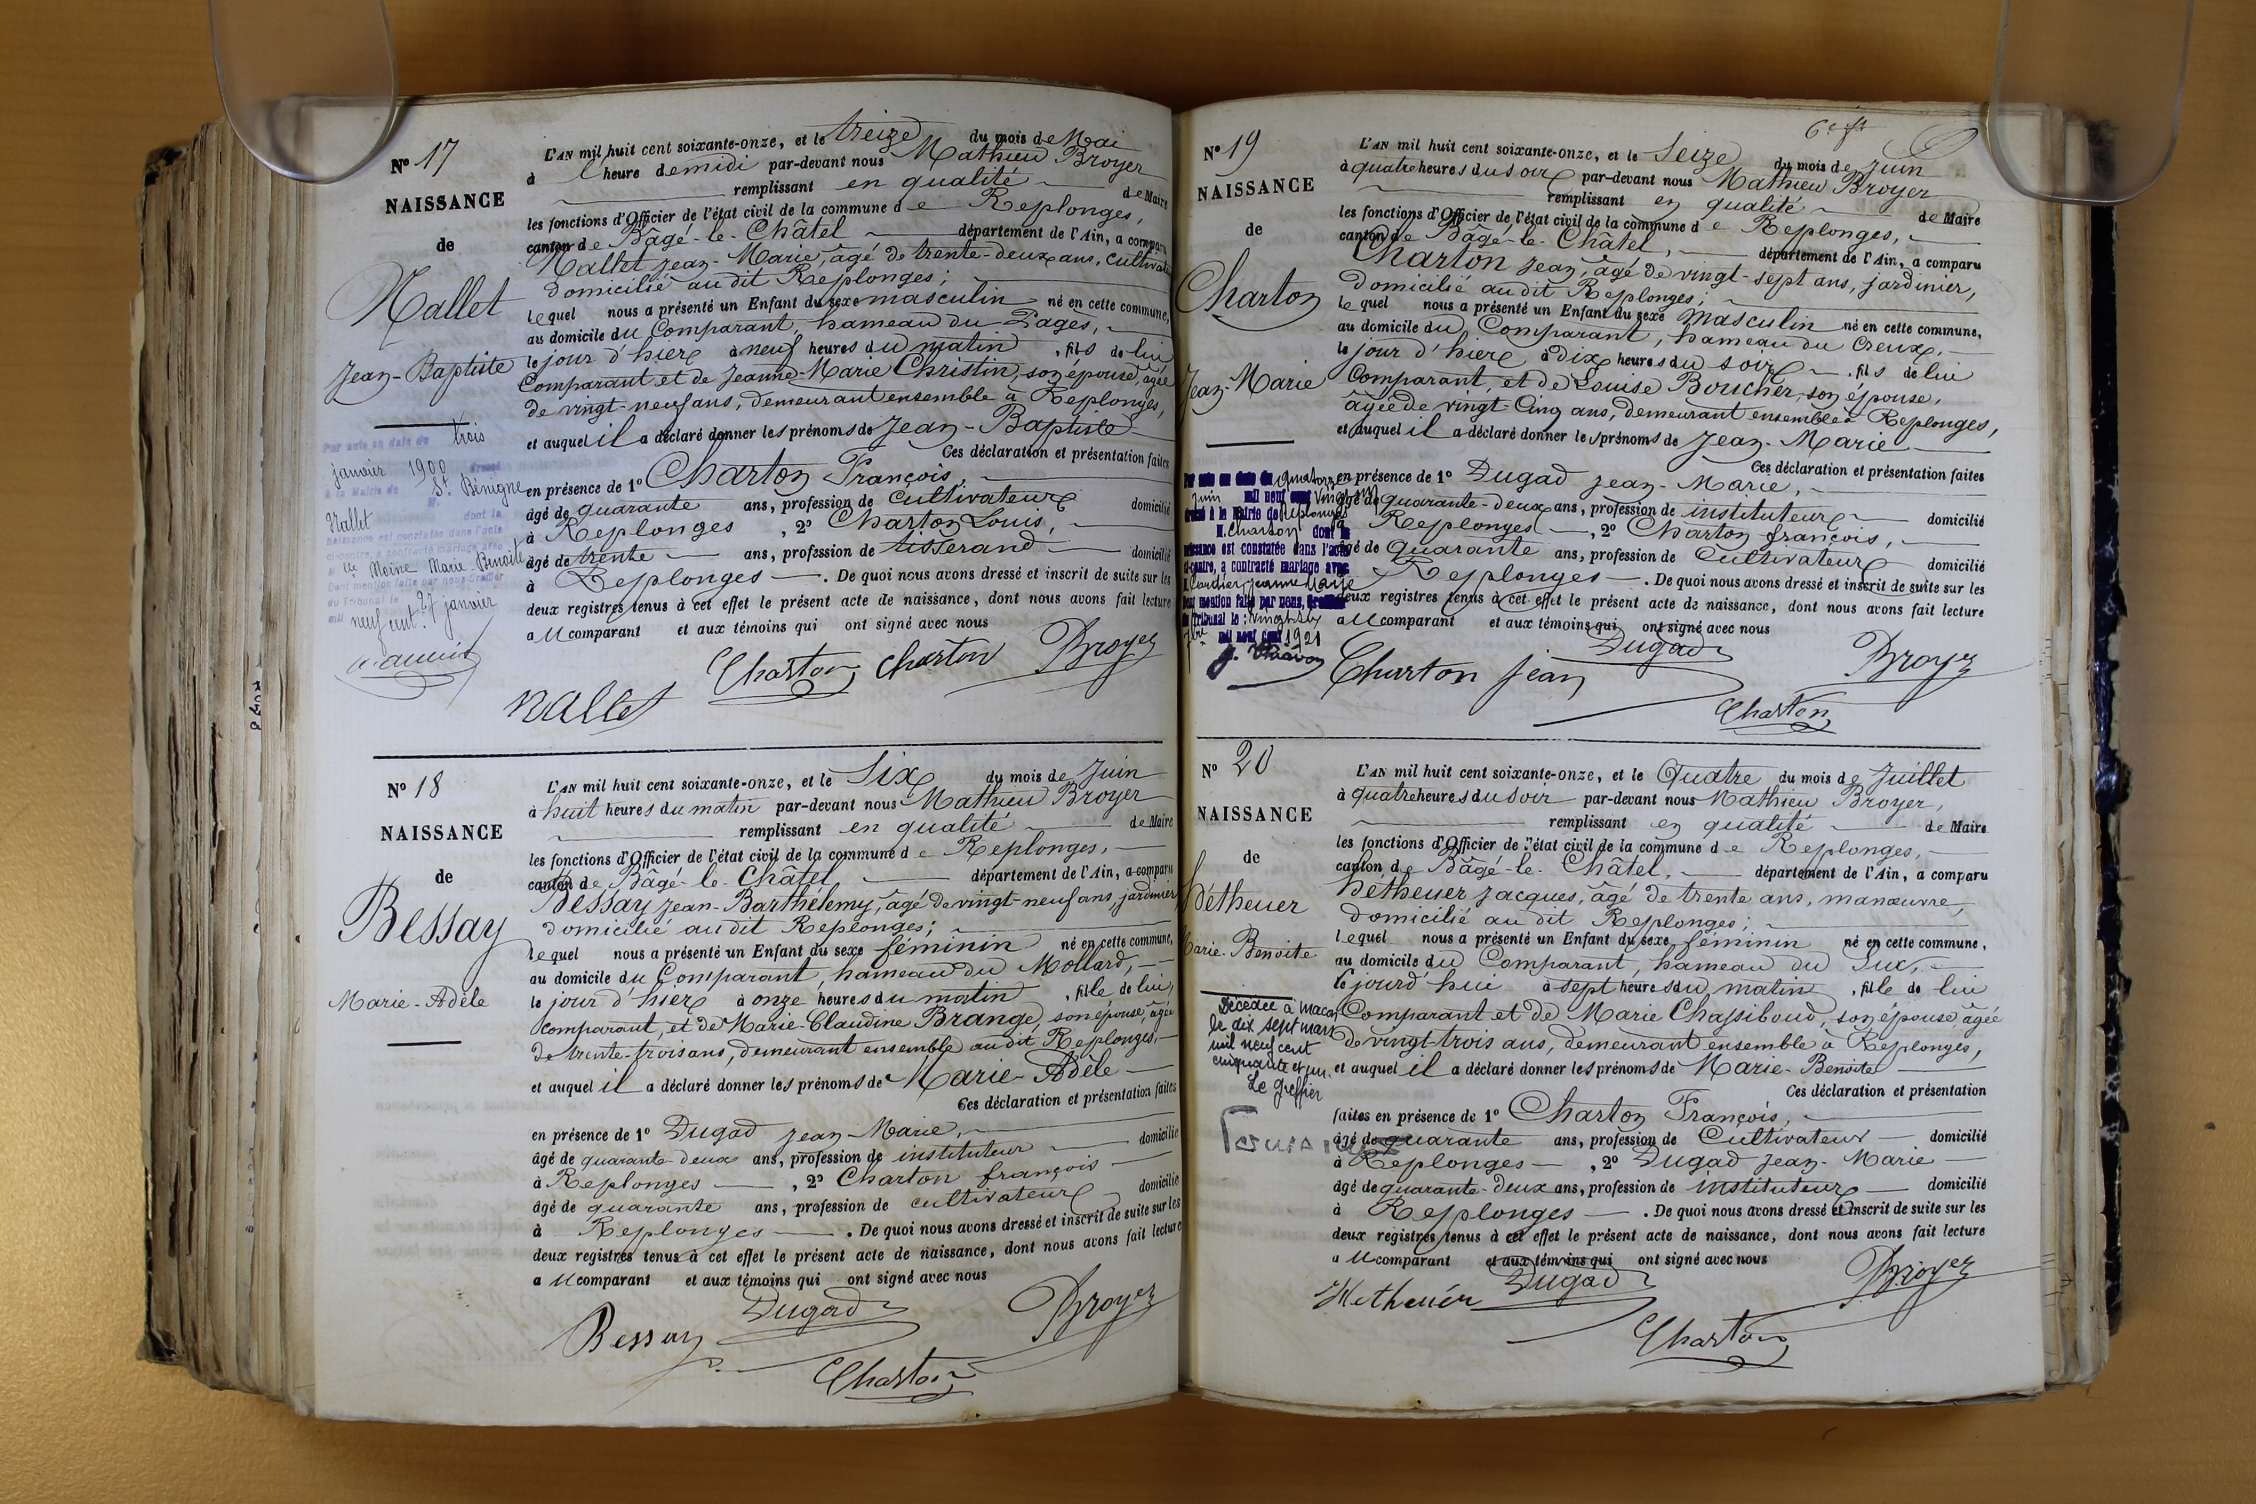 N° 17
NAISSANCE
de
Nallet
Jean-Baptiste
Par acte en date du trois
janvier 1900 dressé
à la Mairie de St Bénigne
Nallet dont la
naissance est constatée dans l'acte
ci-contre, a contracté mariage avec
Moine Marie Benoite
Dont mention faite par nous Greffier
du Tribunal le 27 janvier
mil neuf cent
L'AN mil huit cent soixante-onze, et le treize du mois de Mai
à l'heure de midi par-devant nous Mathieu Broyer
remplissant en qualité de Maire
les fonctions d'Officier de l'état civil de la commune de Replonges,
canton de Bâgé-le-Châtel département de l'Ain, a comparu
Nallet Jean-Marie, âgé de trente-deux ans, cultivateur
domicilié au dit Replonges;
lequel nous a présenté un Enfant du sexe masculin né en cette commune,
au domicile du Comparant, hameau du Pages,
le jour d'hier à neuf heures du matin, fils de lui
Comparant et de Jeanne-Marie Christin, son épouse, âgée
de vingt-neuf ans, demeurant ensemble à Replonges,
et auquel il a déclaré donner les prénoms de Jean-Baptiste
Ces déclaration et présentation faites
en présence de 1° Charton François,
âgé de quarante ans, profession de cultivateur domicilié
à Replonges, 2° Charton Louis,
âgé de trente ans, profession de tisserand domicilié
à Replonges. De quoi nous avons dressé et inscrit de suite sur les
deux registres tenus à cet effet le présent acte de naissance, dont nous avons fait lecture
au comparant et aux témoins qui ont signé avec nous
Charton Charton Broyer
Nallet
N° 18
NAISSANCE
de
Bessay
Marie-Adèle
L'AN mil huit cent soixante-onze, et le Six du mois de Juin
à huit heures du matin par-devant nous Mathieu Broyer
remplissant en qualité de Maire
les fonctions d'Officier de l'état civil de la commune de Replonges,
canton de Bâgé-le-Châtel département de l'Ain, a comparu
Bessay Jean-Barthélemy, âgé de vingt-neuf ans, jardinier
domicilié au dit Replonges;
lequel nous a présenté un Enfant du sexe féminin né en cette commune,
au domicile du Comparant, hameau du Mollard,
le jour d'hier à onze heures du matin, fille de lui
comparant, et de Marie-Claudine Brangé, son épouse, âgée
de trente-trois ans, demeurant ensemble au dit Replonges,
et auquel il a déclaré donner les prénoms de Marie-Adèle
Ces déclaration et présentation faites
en présence de 1° Dugad Jean-Marie,
âgé de quarante-deux ans, profession de instituteur domicilié
à Replonges, 2° Charton françois
âgé de quarante ans, profession de cultivateur domicilié
à Replonges. De quoi nous avons dressé et inscrit de suite sur les
deux registres tenus à cet effet le présent acte de naissance, dont nous avons fait lecture
au comparant et aux témoins qui ont signé avec nous
Bessay Dugad Broyer
Charton
N° 19
NAISSANCE
de
Charton
Jean-Marie
Par acte en date du quatorze
Juin mil neuf cent vingt un
dressé à la Mairie de Replonges
M. Charton dont la
naissance est constatée dans l'acte
ci-contre, a contracté mariage avec
Cordier Jeanne Marie
Dont mention faite par nous, Greffier
du Tribunal le vingt six
mil neuf cent 1921
6e ft
L'AN mil huit cent soixante-onze, et le Seize du mois de Juin
à quatre heures du soir par-devant nous Mathieu Broyer
remplissant en qualité de Maire
les fonctions d'Officier de l'état civil de la commune de Replonges,
canton de Bâgé-le-Châtel, département de l'Ain, a comparu
Charton Jean, âgé de vingt-sept ans, jardinier,
domicilié au dit Replonges;
lequel nous a présenté un Enfant du sexe masculin né en cette commune,
au domicile du Comparant, hameau du Creux,
le jour d'hier à dix heures du soir, fils de lui
Comparant, et de Louise Boucher, son épouse,
âgée de vingt-Cinq ans, demeurant ensemble à Replonges,
et auquel il a déclaré donner les prénoms de Jean-Marie
Ces déclaration et présentation faites
en présence de 1° Dugad Jean-Marie,
âgé de quarante-deux ans, profession de instituteur domicilié
à Replonges, 2° Charton françois,
âgé de quarante ans, profession de Cultivateur domicilié
à Replonges. De quoi nous avons dressé et inscrit de suite sur les
deux registres tenus à cet effet le présent acte de naissance, dont nous avons fait lecture
au comparant et aux témoins qui ont signé avec nous
Charton Jean Dugad Broyer
Charton
N° 20
NAISSANCE
de
Hétheuer
Marie-Benoite
Décédée à macon
le dix sept mars
mil neuf cent
cinquante et un.
Le Greffier
L'AN mil huit cent soixante-onze, et le Quatre du mois de Juillet
à quatre heures du soir par-devant nous Mathieu Broyer,
remplissant en qualité de Maire
les fonctions d'Officier de l'état civil de la commune de Replonges,
canton de Bâgé-le-Châtel, département de l'Ain, a comparu
Hetheuer Jacques, âgé de trente ans, manœuvre,
domicilié au dit Replonges;
lequel nous a présenté un Enfant du sexe féminin né en cette commune,
au domicile du Comparant, hameau du Sux,
le jourd'hui à sept heures du matin, fille de lui
Comparant et de Marie Chassiboud, son épouse, âgée
de vingt-trois ans, demeurant ensemble à Replonges,
et auquel il a déclaré donner les prénoms de Marie-Benoite
Ces déclaration et présentation
faites en présence de 1° Charton François,
âgé de quarante ans, profession de Cultivateur domicilié
à Replonges, 2° Dugad Jean-Marie
âgé de quarante-deux ans, profession de instituteur domicilié
à Replonges. De quoi nous avons dressé et inscrit de suite sur les
deux registres tenus à cet effet le présent acte de naissance, dont nous avons fait lecture
au comparant et aux témoins qui ont signé avec nous
Hetheuér Dugad Broyer
Charton